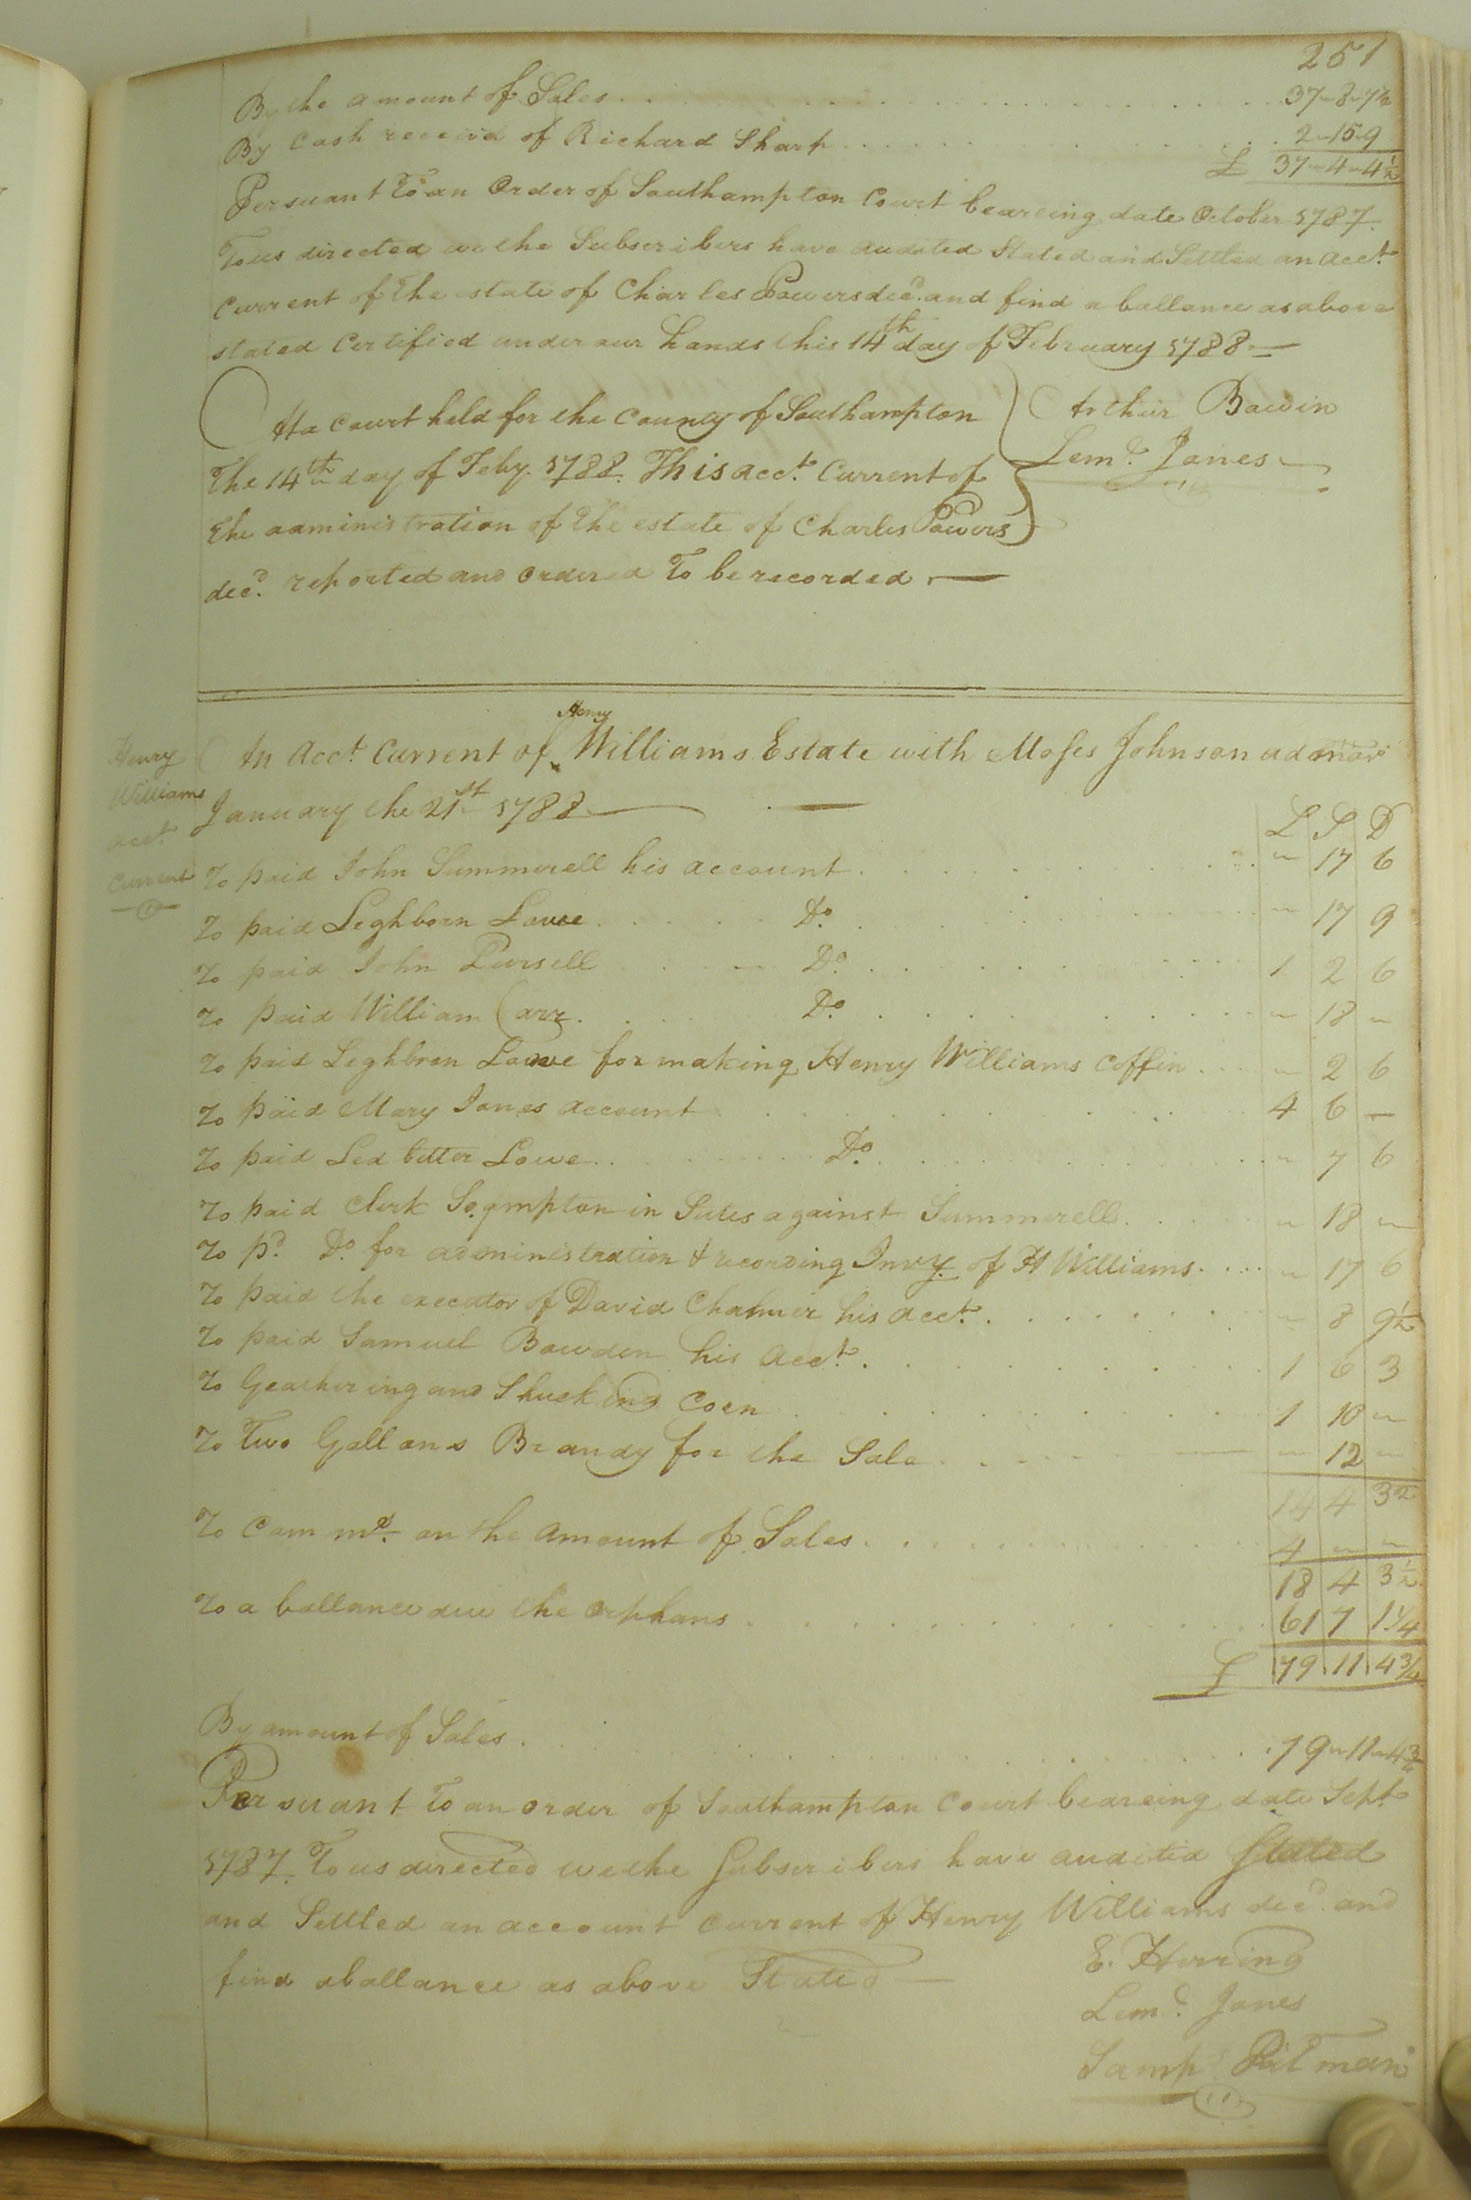 251
By the amount of Sales 37-8-7½
By Cash received of Richard Sharp 2-15-9
£ 37-4-4½
Persuant To an Order of Southampton Court beareing date October 1787
To us directed we the Subscribers have audited Stated and Settled an Acct
Current of the estate of Charles Powers decd. and find a ballance as above
stated Certified under our hands this 14th day of February 1788
At a Court held for the County of Southampton
The 14th day of Feby. 1788. This Acct. Current of
the administration of the estate of Charles Powers
decd. reported and ordered To be recorded
Arthur Bowin
Lemd. Jones
Henry
Williams
acct
Current
In Acct Current of Henry Williams Estate with Moses Johnson admor
January the 21st 1788
L S D
To paid John Summerell his account ~ 17 6
To paid Leghborn Lowe Do. ~ 17 9
To paid John Pursell Do. 1 2 6
To paid William Carr Do. ~ 18 ~
To paid Leghbron Lowe for making Henry Williams Coffin ~ 2 6
To paid Mary Jones account 4 6 ~
To paid Led better Lowe Do. ~ 7 6
To paid Clerk So,ampton in Sutes against Summerell ~ 18 ~
To pd. Do for administration & recording Invy. of H Williams ~ 17 6
To paid the executor of David Chalmer his Acct. ~ 8 9½
To paid Samuel Bowden his Acct. 1 6 3
To Geathering and Shucking Corn 1 10 ~
To Two Gallons Brandy for the Sale ~ 12 ~
14 4 3½
To Com ms. on the Amount of Sales 4 ~ ~
18 4 3½
To a ballance due the orphans 61 7 1¼
£ 79 11 4¾
By amount of Sales 79-11-4¾
Persuant To an order of Southampton Court beareing date Sept
1787. To us directed we the Subscribers have audited Stated
and Settled an account Current of Henry Williams decd. and
find a ballance as above Stated
E. Herring
Lemd. Jones
Samp Pitman